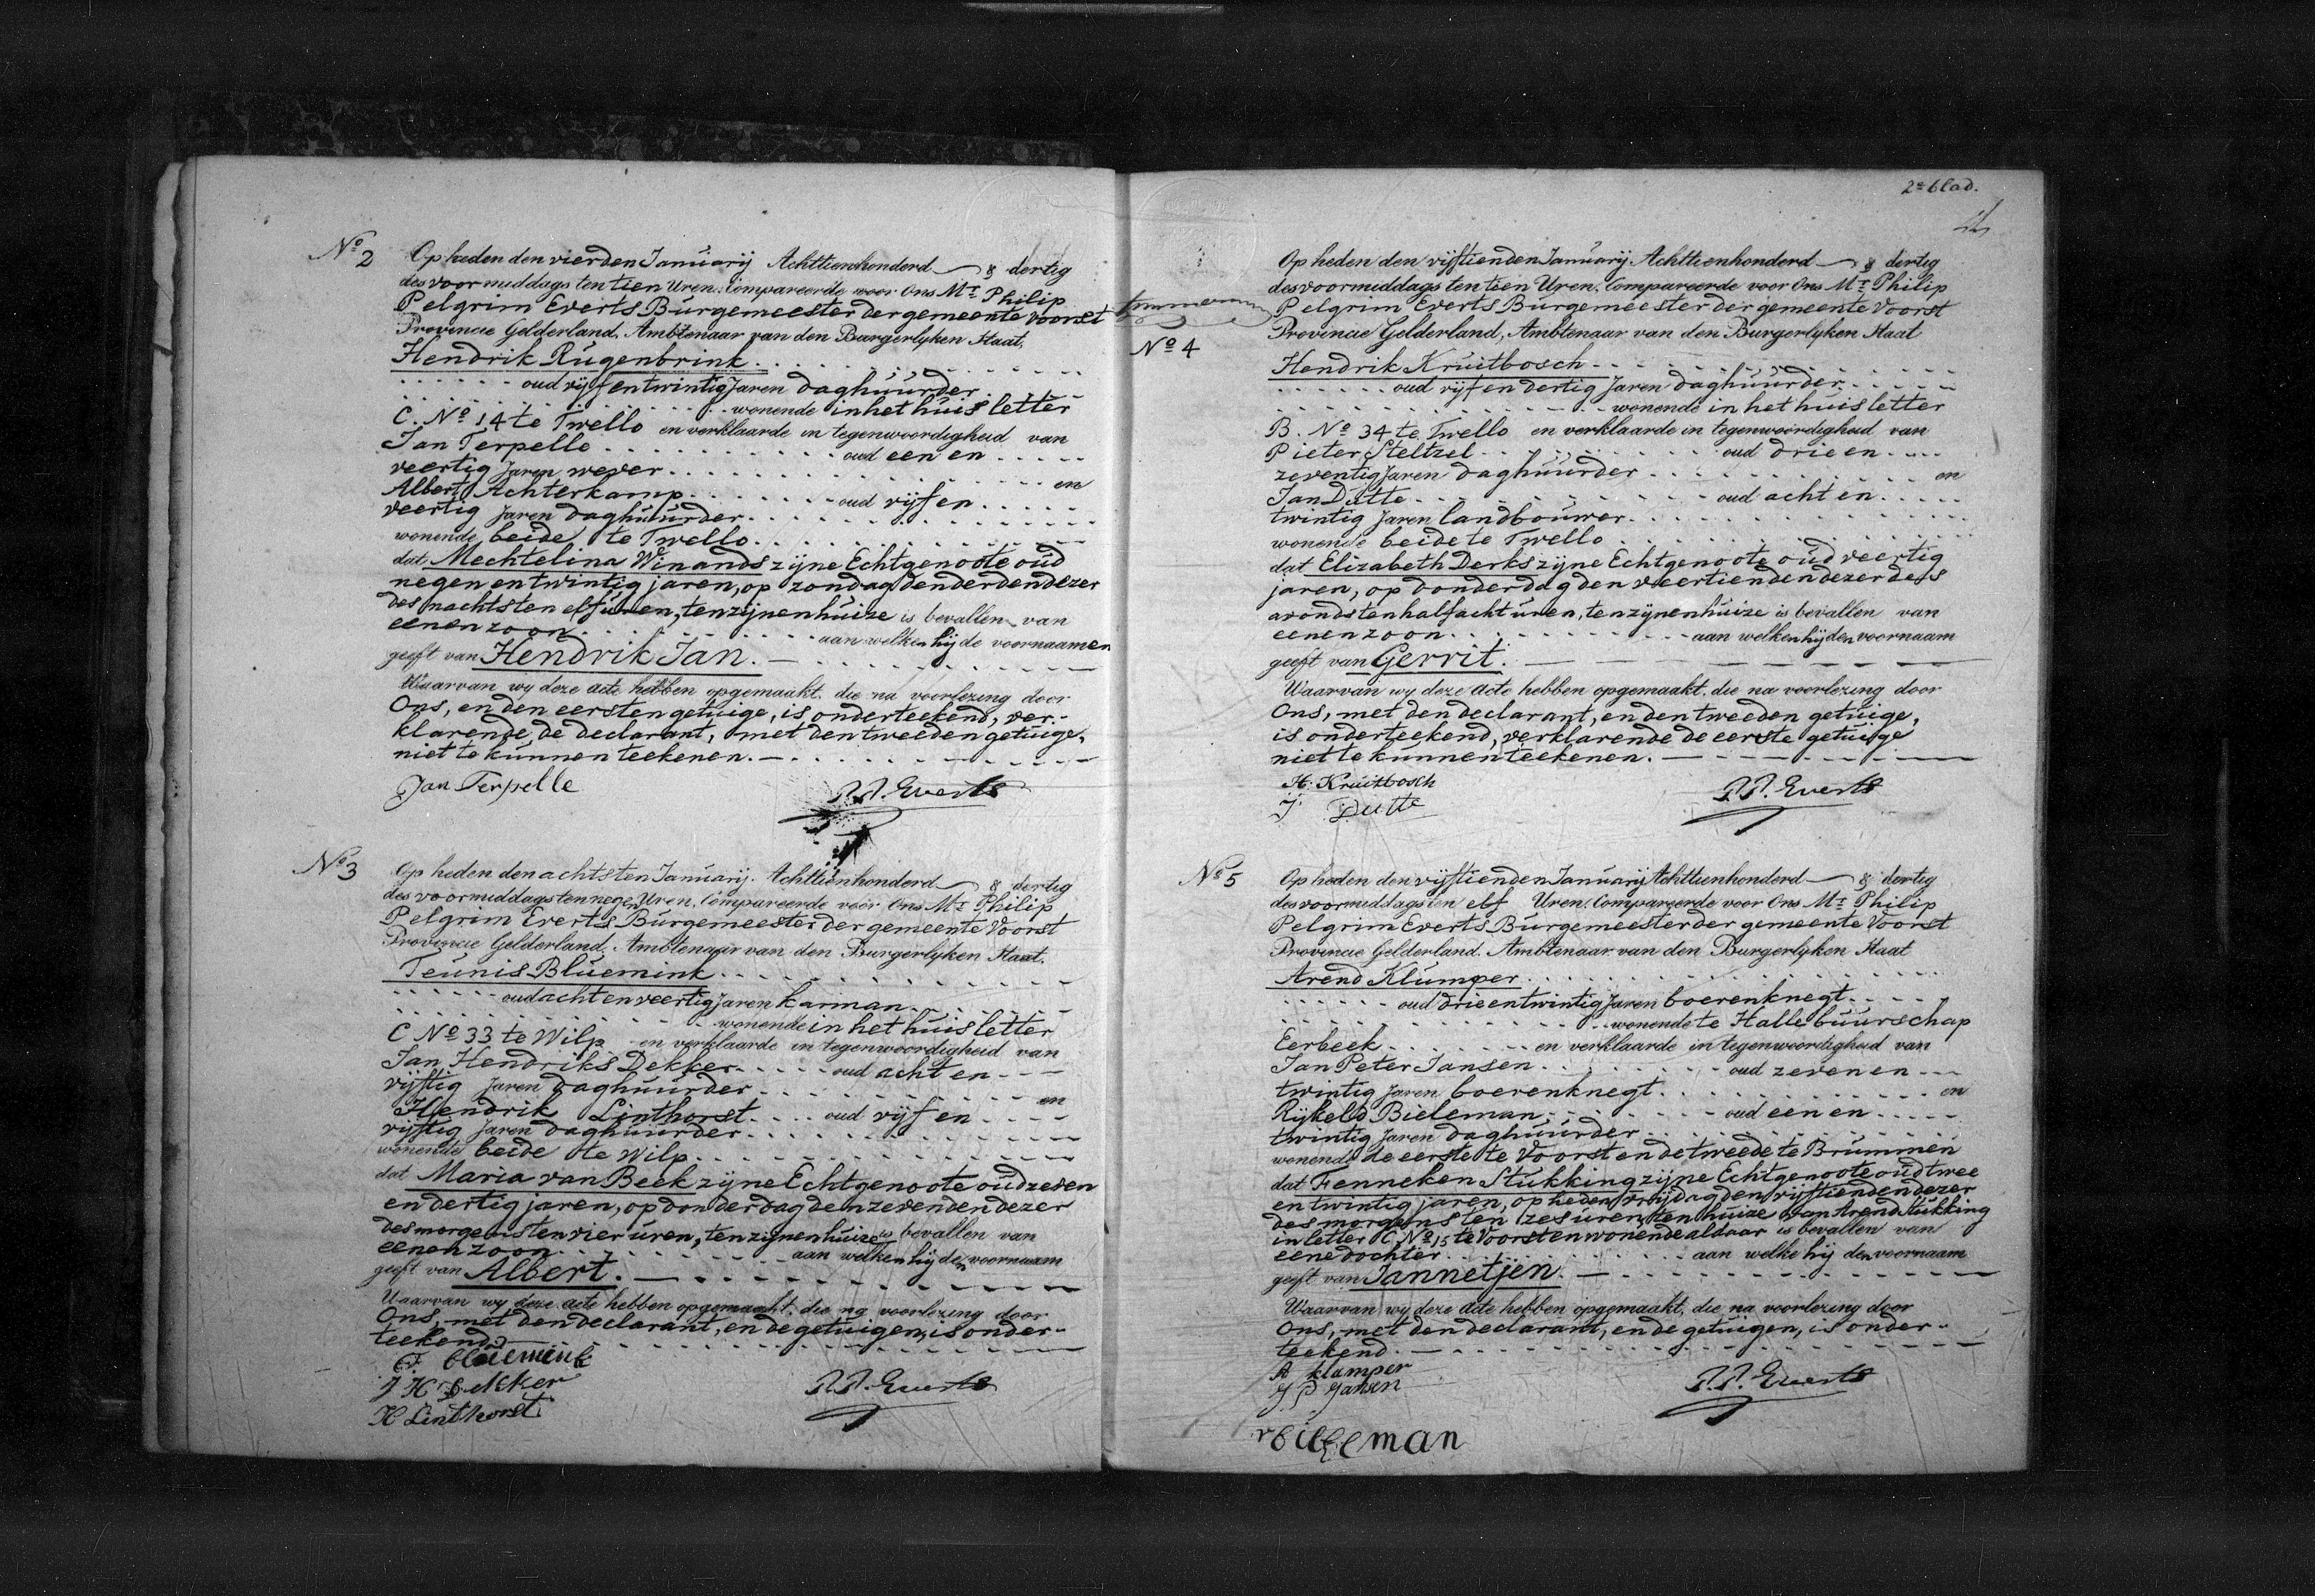 No 2
Op heden den vierden Januarij Achttienhonderd & dertig
des voormiddags ten tien Uren, Compareerde voor Ons Mr Philip
Pelgrim Everts Burgemeester der gemeente Voorst
Provincie Gelderland, Ambtenaar van den Burgerlyken Staat,
Hendrik Rugenbrink
oud vijf en twintig Jaren daghuurder
wonende in het huis letter
C. No 14 te Twello en verklaarde in tegenwoordigheid van
Jan Terpelle oud een en
veertig Jaren wever en
Albert Achterkamp oud vijf en
veertig Jaren daghuurder
wonende beide te Twello
dat Mechtelina Winands zijne Echtgenoote oud
negen en twintig jaren, op zondag den derden dezer
des nachts ten elf uren, ten zijnen huize is bevallen van
eenen zoon aan welken hij de voornaamen
geeft van Hendrik Jan.
Waarvan wy deze acte hebben opgemaakt, die na voorlezing door
Ons, en den eersten getuige, is onderteekend, ver-
klarende de declarant, met den tweeden getuige,
niet te kunnen teekenen.
Jan Terpelle
P.P. Everts
No 3
Op heden den achtsten Januarij Achttienhonderd & dertig
des voormiddags ten negen Uren, Compareerde voor Ons Mr Philip
Pelgrim Everts Burgemeester der gemeente Voorst
Provincie Gelderland, Ambtenaar van den Burgerlyken Staat,
Teunis Bluemink
oud acht en veertig Jaren karman
wonende in het huis letter
C No 33 te Wilp en verklaarde in tegenwoordigheid van
Jan Hendriks Dekker oud acht en
vijftig Jaren daghuurder en
Hendrik Linthorst oud vijf en
vijftig Jaren daghuurder
wonende beide te Wilp
dat Maria van Beek zijne Echtgenoote oud zeven
en dertig jaren, op donderdag den zevenden dezer
des morgens ten vier uren, ten zijnen huize is bevallen van
eenen zoon aan welken hij den voornaam
geeft van Albert.
Waarvan wy deze acte hebben opgemaakt, die na voorlezing door
Ons, met den declarant, en de getuigen, is onder-
teekend
J H Dekker
H Linthorst
P.P. Everts
2e blad.
No 4
Op heden den vijftienden Januarij Achttienhonderd & dertig
des voormiddags ten tien Uren, Compareerde voor Ons Mr Philip
Pelgrim Everts Burgemeester der gemeente Voorst
Provincie Gelderland, Ambtenaar van den Burgerlyken Staat
Hendrik Kruitbosch
oud vijf en dertig Jaren daghuurder
wonende in het huis letter
B. No 34 te Twello en verklaarde in tegenwoordigheid van
Pieter Steltzel oud drie en
zeventig Jaren daghuurder en
Jan Dutte oud acht en
twintig Jaren landbouwer
wonende beide te Twello
dat Elizabeth Derks zijne Echtgenoote oud veertig
jaren, op donderdag den veertienden dezer des
avonds ten half acht uren, ten zijnen huize is bevallen van
eenen zoon aan welken hij den voornaam
geeft van Gerrit.
Waarvan wy deze acte hebben opgemaakt, die na voorlezing door
Ons, met den declarant, en den tweeden getuige,
is onderteekend, verklarende de eerste getuige
niet te kunnen teekenen.
H. Kruitbosch
J Dutte
P.P. Everts
No 5
Op heden den vijftienden Januarij Achttienhonderd & dertig
des voormiddags ten elf Uren, Compareerde voor Ons Mr Philip
Pelgrim Everts Burgemeester der gemeente Voorst
Provincie Gelderland, Ambtenaar van den Burgerlyken Staat
Arend Klumper
oud drie en twintig Jaren boerenknegt
wonende te Halle buurschap
Eerbeek en verklaarde in tegenwoordigheid van
Jan Peter Jansen oud zeven en
twintig Jaren boerenknegt en
Rijkeld Bieleman oud een en
twintig Jaren daghuurder
wonende de eerste te Voorst en de tweede te Brummen
dat Fenneken Stukking zijne Echtgenoote oud twee
en twintig jaren, op heden vrijdag den vijftienden dezer
des morgens ten zes uren, ten huize van Arend Stukking
in letter C No 15 te Voorst en wonende aldaar is bevallen van
eene dochter aan welke hij den voornaam
geeft van Jannetjen.
Waarvan wy deze acte hebben opgemaakt, die na voorlezing door
Ons, met den declarant, en de getuigen, is onder-
teekend.
A klumper
J P Jansen
P.P. Everts